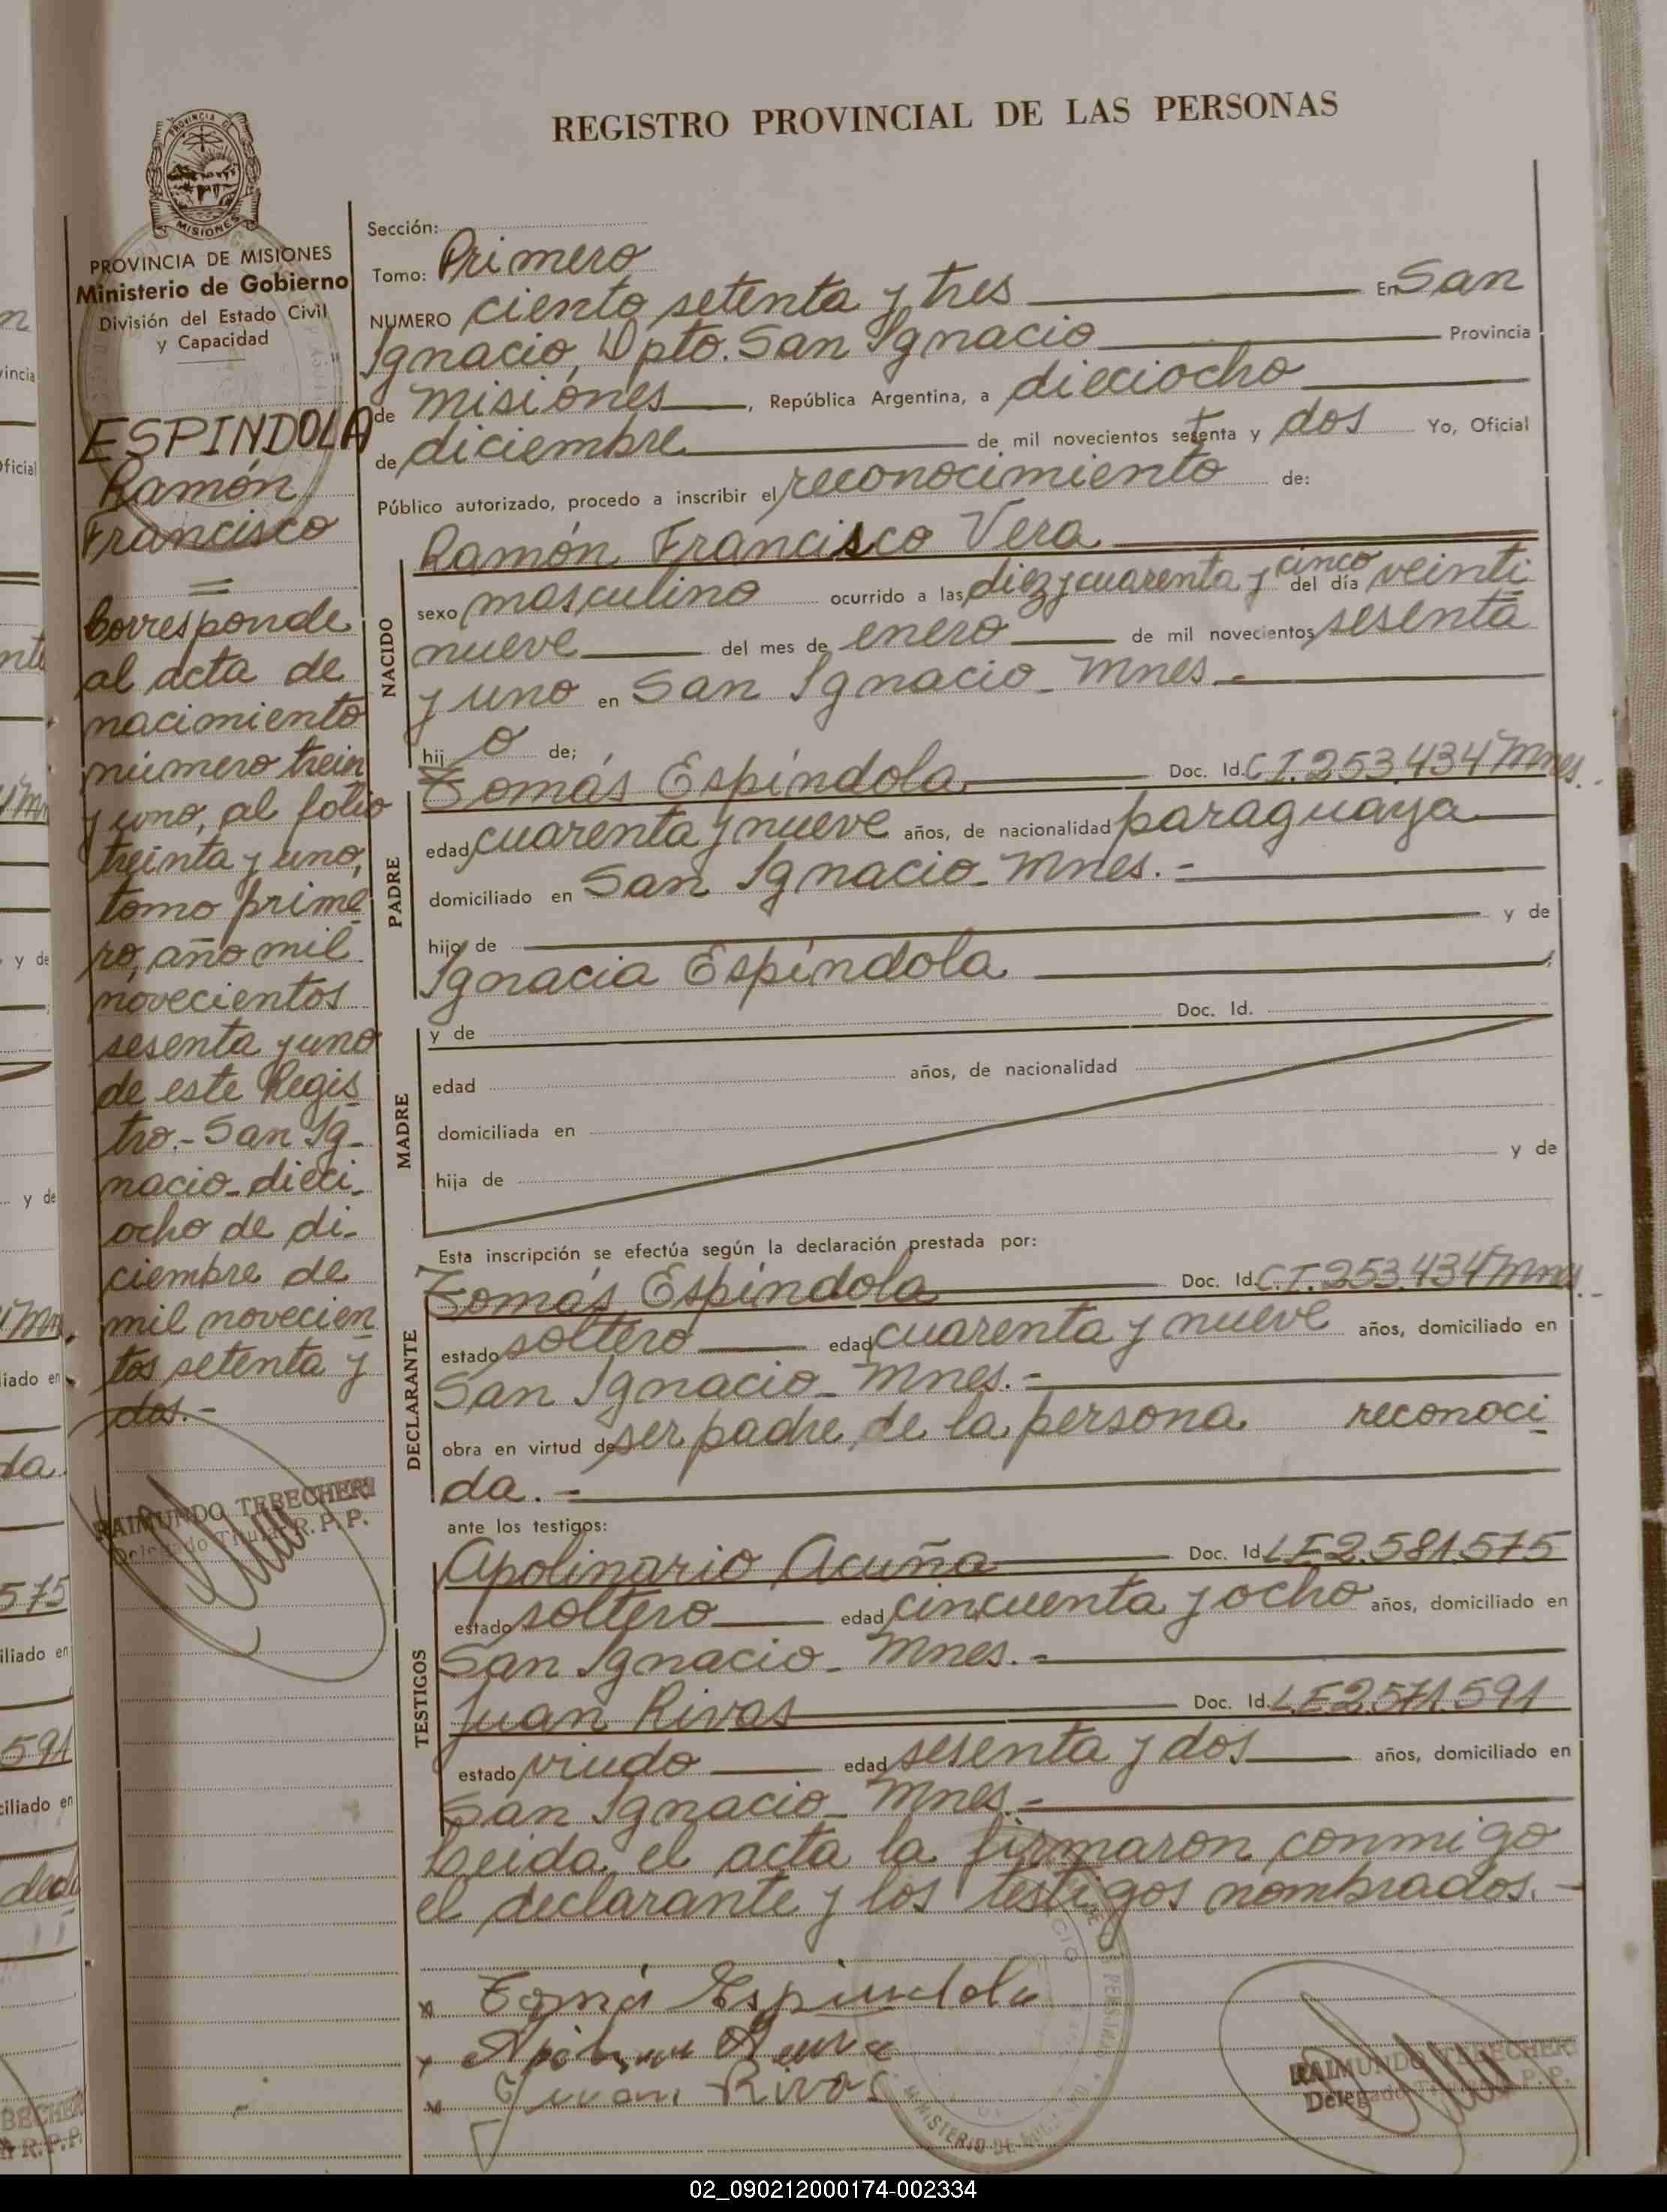 REGISTRO PROVINCIAL DE LAS PERSONAS
PROVINCIA DE
MISIONES
PROVINCIA DE MISIONES
Ministerio de Gobierno
División del Estado Civil
y Capacidad
ESPINDOLA
Ramón
Francisco
=
Corresponde
al acta de
nacimiento
número trein
y uno, al folio
treinta y uno,
tomo prime
ro, año mil
novecientos
sesenta y uno
de este Regis
tro.- San Ig-
nacio- dieci-
ocho de di-
ciembre de
mil novecien
tos setenta y
dos.-
RAIMUNDO TEBECHERI
Delegado Titular R. P. P.
Sección:
Tomo: Primero
NUMERO ciento setenta y tres En San
Ignacio, Dpto. San Ignacio Provincia
de Misiones, República Argentina, a dieciocho
de diciembre de mil novecientos setenta y dos Yo, Oficial
Público autorizado, procedo a inscribir el reconocimiento de:
NACIDO
Ramón Francisco Vera
sexo masculino ocurrido a las diez y cuarenta y cinco del día veinti
nueve del mes de enero de mil novecientos sesenta
y uno en San Ignacio- Mnes.-
hijo de;
PADRE
Tomás Espíndola Doc. Id. C.I. 253.434 Mnes.-
edad cuarenta y nueve años, de nacionalidad paraguaya
domiciliado en San Ignacio- Mnes.-
hijo de y de
Ignacia Espíndola ;
MADRE
y de Doc. Id.
edad años, de nacionalidad
domiciliada en
hija de y de
Esta inscripción se efectúa según la declaración prestada por:
DECLARANTE
Tomás Espíndola Doc. Id. C.I. 253.434 Mnes.-
estado soltero edad cuarenta y nueve años, domiciliado en
San Ignacio- Mnes.-
obra en virtud de ser padre de la persona reconoci
da.-
ante los testigos:
TESTIGOS
Apolinario Acuña Doc. Id. L.E. 2.581.575
estado soltero edad cincuenta y ocho años, domiciliado en
San Ignacio- Mnes.-
Juan Rivas Doc. Id. L.E. 2.571.591
estado viudo edad sesenta y dos años, domiciliado en
San Ignacio- Mnes.-
Leida el acta la firmaron conmigo
el declarante y los testigos nombrados.-
Tomás Espindola
Juan Rivas
RAIMUNDO TEBECHERI
Delegado Titular R. P. P.
02_090212000174-002334